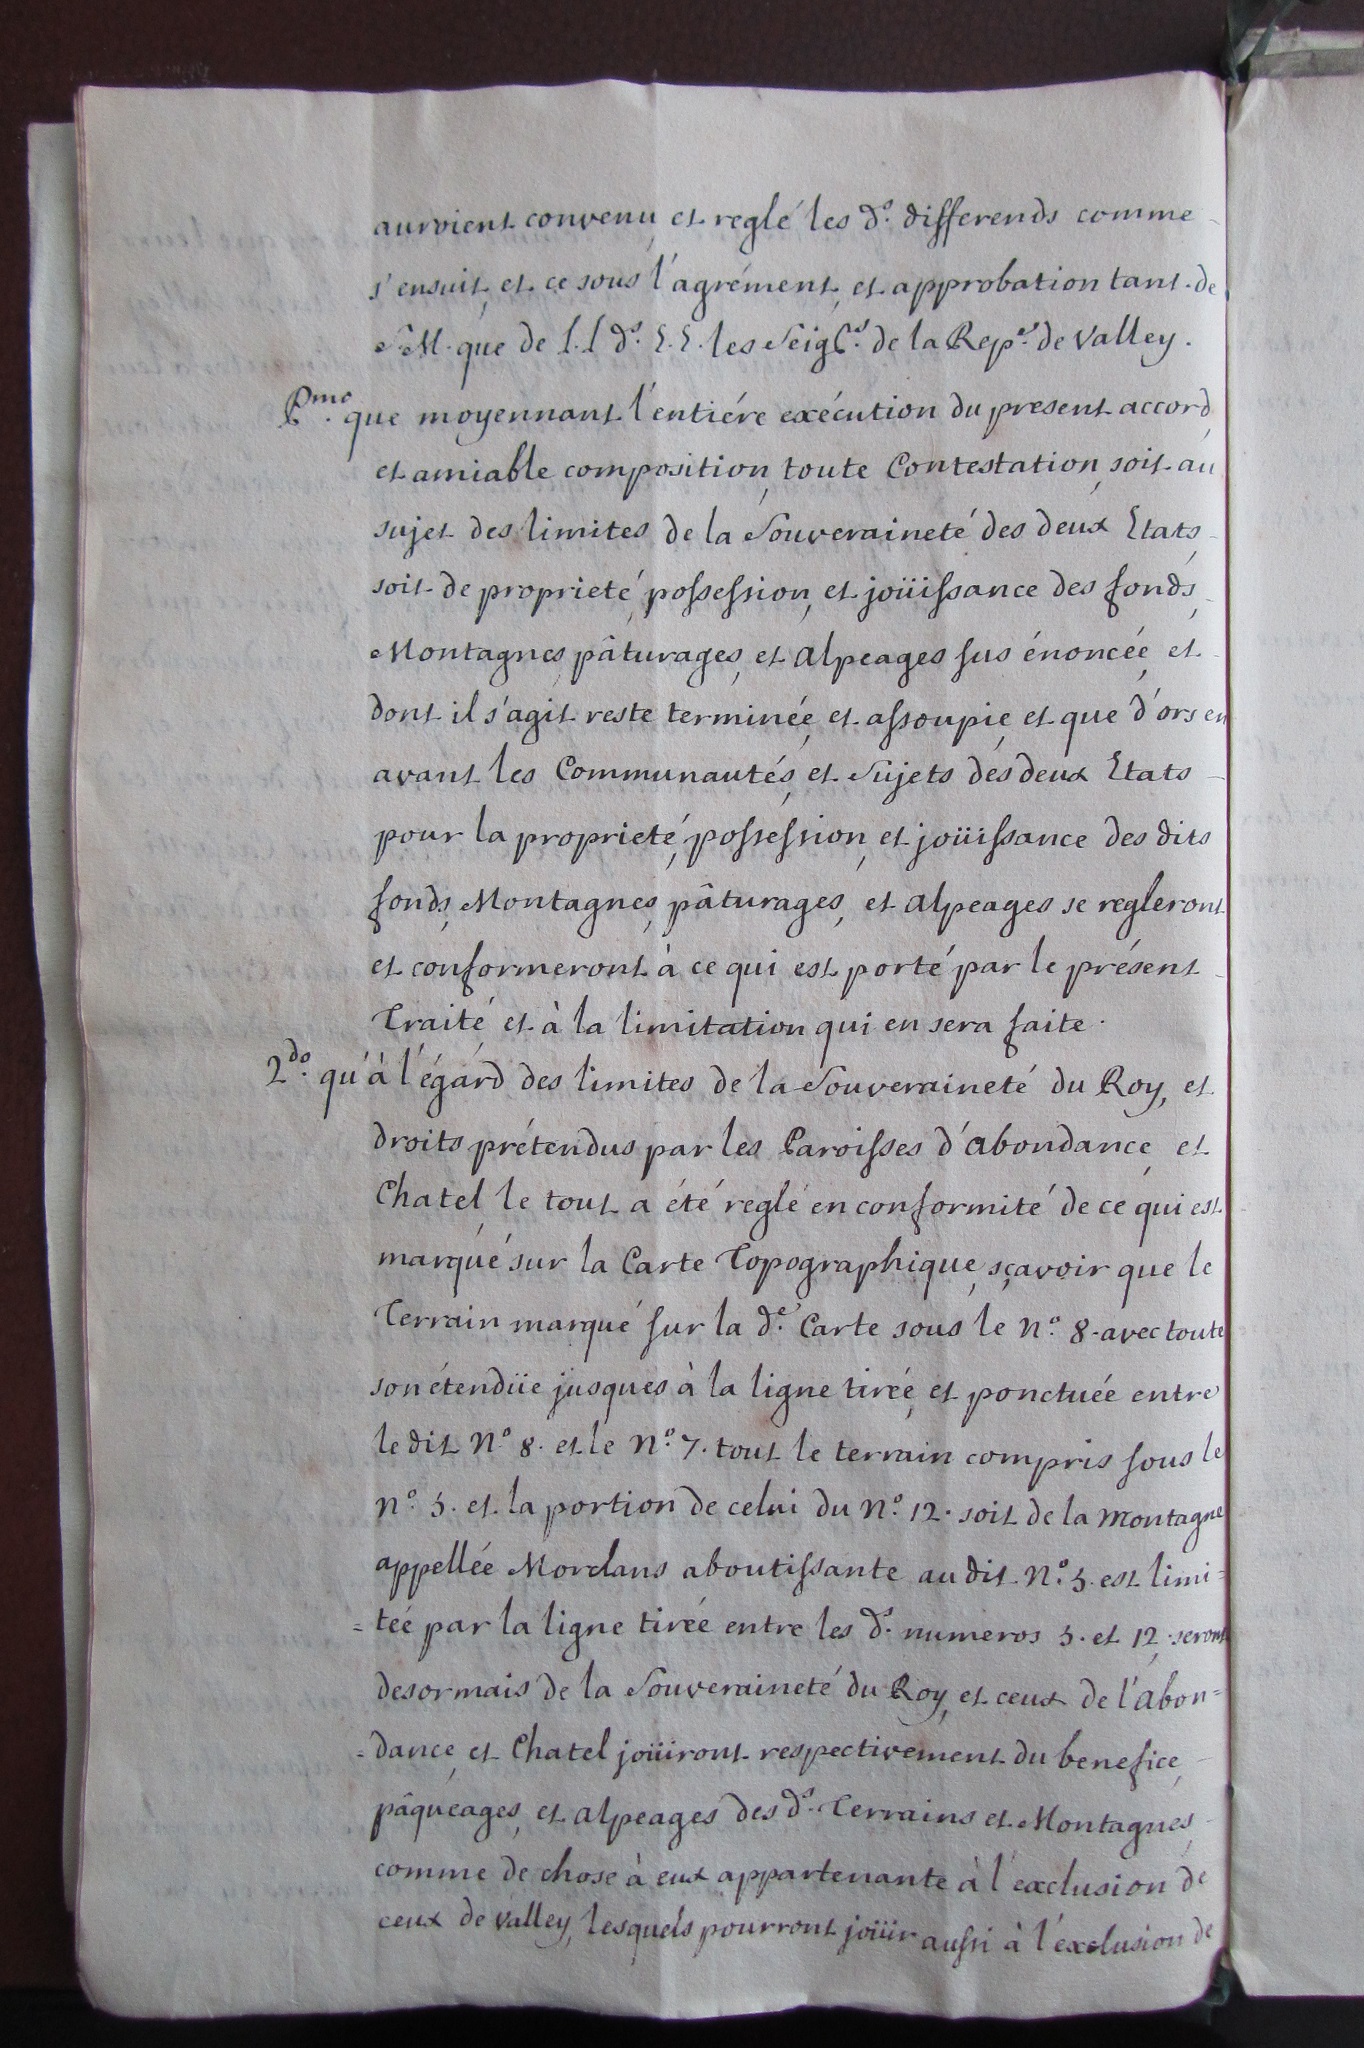 auroient convenu, et reglé les ds. differends comme
s'ensuit, et ce sous l'agrément, et approbation tant de
S. M. que de L. L. ds. E. E. les Seigrs. de la Repe. de Valley.
Pmo. que moyennant l'entiére exécution du present accord,
et amiable composition, toute Contestation, soit au
sujet des limites de la Souveraineté des deux Etats,
soit de proprieté, possession, et joüissance des fonds,
Montagnes, pâturages, et alpeages sus énoncée, et
dont il s'agit reste terminée, et assoupie, et que d'ors en
avant les Communautés, et Sujets des deux Etats
pour la proprieté, possession, et joüissance des dits
fonds, Montagnes, pâturages, et alpeages se regleront
et conformeront à ce qui est porté par le présent
Traité et à la limitation qui en sera faite.
2do. qu'à l'égard des limites de la Souveraineté du Roy, et
droits prétendus par les Paroisses d'abondance, et
Chatel le tout a été reglé en conformité de ce qui est
marqué sur la Carte Topographique, sçavoir que le
Terrain marqué sur la de. Carte sous le No. 8. avec toute
son étendüe jusques à la ligne tirée, et ponctuée entre
le dit No. 8. et le No. 7. tout le terrain compris sous le
No. 5. et la portion de celui du No. 12. soit de la montagne
appellée Morclans aboutissante au dit No. 5. est limi=
=tée par la ligne tirée entre les ds. numeros 5. et 12. seront
desormais de la Souveraineté du Roy, et ceux de l'abon=
=dance, et Chatel joüiront respectivement du benefice,
pâquéages, et alpeages des ds. Terrains et Montagnes,
comme de chose à eux appartenante à l'exclusion de
ceux de Valley, lesquels pourront joüir aussi à l'exclusion de